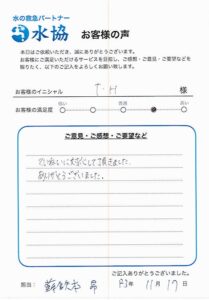 水の救急パートナー
水協 お客様の声
本日はご依頼いただき、誠にありがとうございます。
お客様にご満足いただけるサービスを目指し、ご感想・ご意見・ご要望などを
賜りたく、以下のご記入をよろしくお願い致します。
お客様のイニシャル T・H 様
お客様の満足度 低い 普通 高い
ご意見・ご感想・ご要望など
ていねいに対応して頂きました。
ありがとうございました。
ご記入ありがとうございました。
担当: 昂 R3年 11月 17日